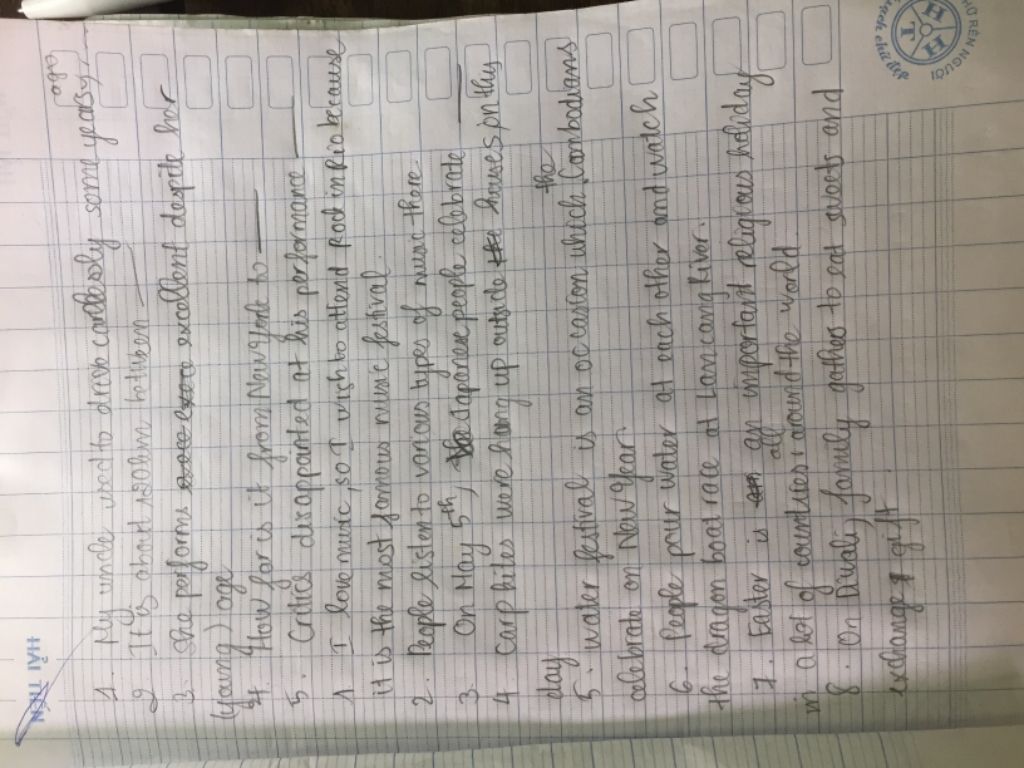 HẢI TIẾN
1. My uncle used to drive carelessly some years ago
2. It is about 1500km between
3. She performs excellent despite her
(young) age
4. How far is it from New York to
5. Critics disappointed at his performance
1. I love music, so I wish to attend Rock in Rio because
it is the most famous music festival
2. People listen to various types of music there
3. On May 5th, Japanese people celebrate
4. Carp kites were hang up outside the houses on this
day
5. Water festival is an occasion which the Cambodians
celebrate on New Year
6. People pour water at each other and watch
the dragon boat race at Lancang River.
7. Easter is an important religious holiday
in a lot of countries all around the world
8. On Diwali, family gather to eat sweets and
exchange gift
CHỮ RÈN NGƯỜI
HHT